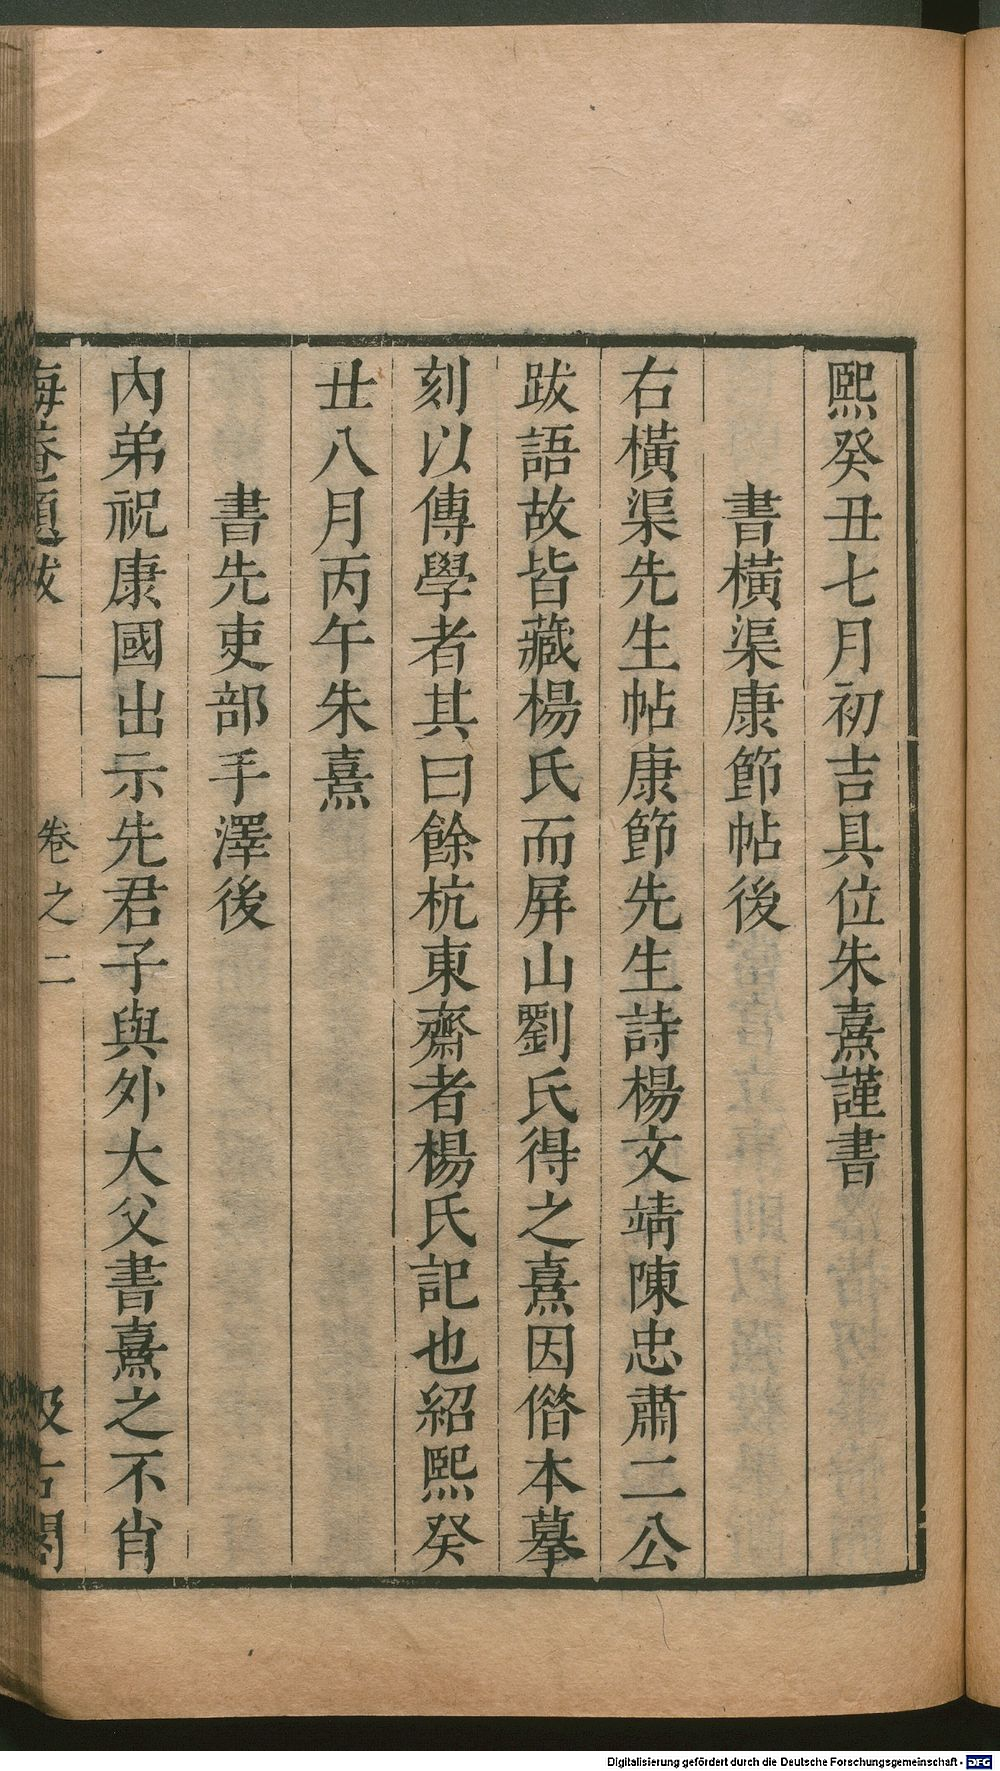 熙癸丑七月初吉具位朱熹謹書
書橫渠康節帖後
右橫渠先生帖康節先生詩楊文靖陳忠肅二公
跋語故皆藏楊氏而屏山劉氏得之熹因偺本摹
刻以傳學者其曰餘杭東齋者楊氏記也紹熙癸
丑八月丙午朱熹
書先吏部手澤後
內弟祝康國出示先君子與外大父書熹之不肖
卷之二
Digitalisierung gefördert durch die Deutsche Forschungsgemeinschaft - DFG